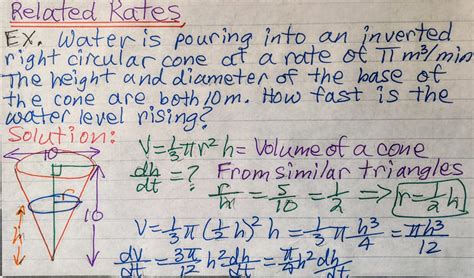 Related Rates
EX. Water is pouring into an inverted
right circular cone at a rate of π m³/min
The height and diameter of the base of
the cone are both 10m. How fast is the
water level rising?
Solution:
10
r
h
10
V = 1/3 πr² h = Volume of a cone
dh/dt = ? From similar triangles
r/h = 5/10 = 1/2 ⇒ r = 1/2 h
V = 1/3 π (1/2 h)² h = 1/3 π h³/4 = πh³/12
dV/dt = 3π/12 h² dh/dt = π/4 h² dh/dt